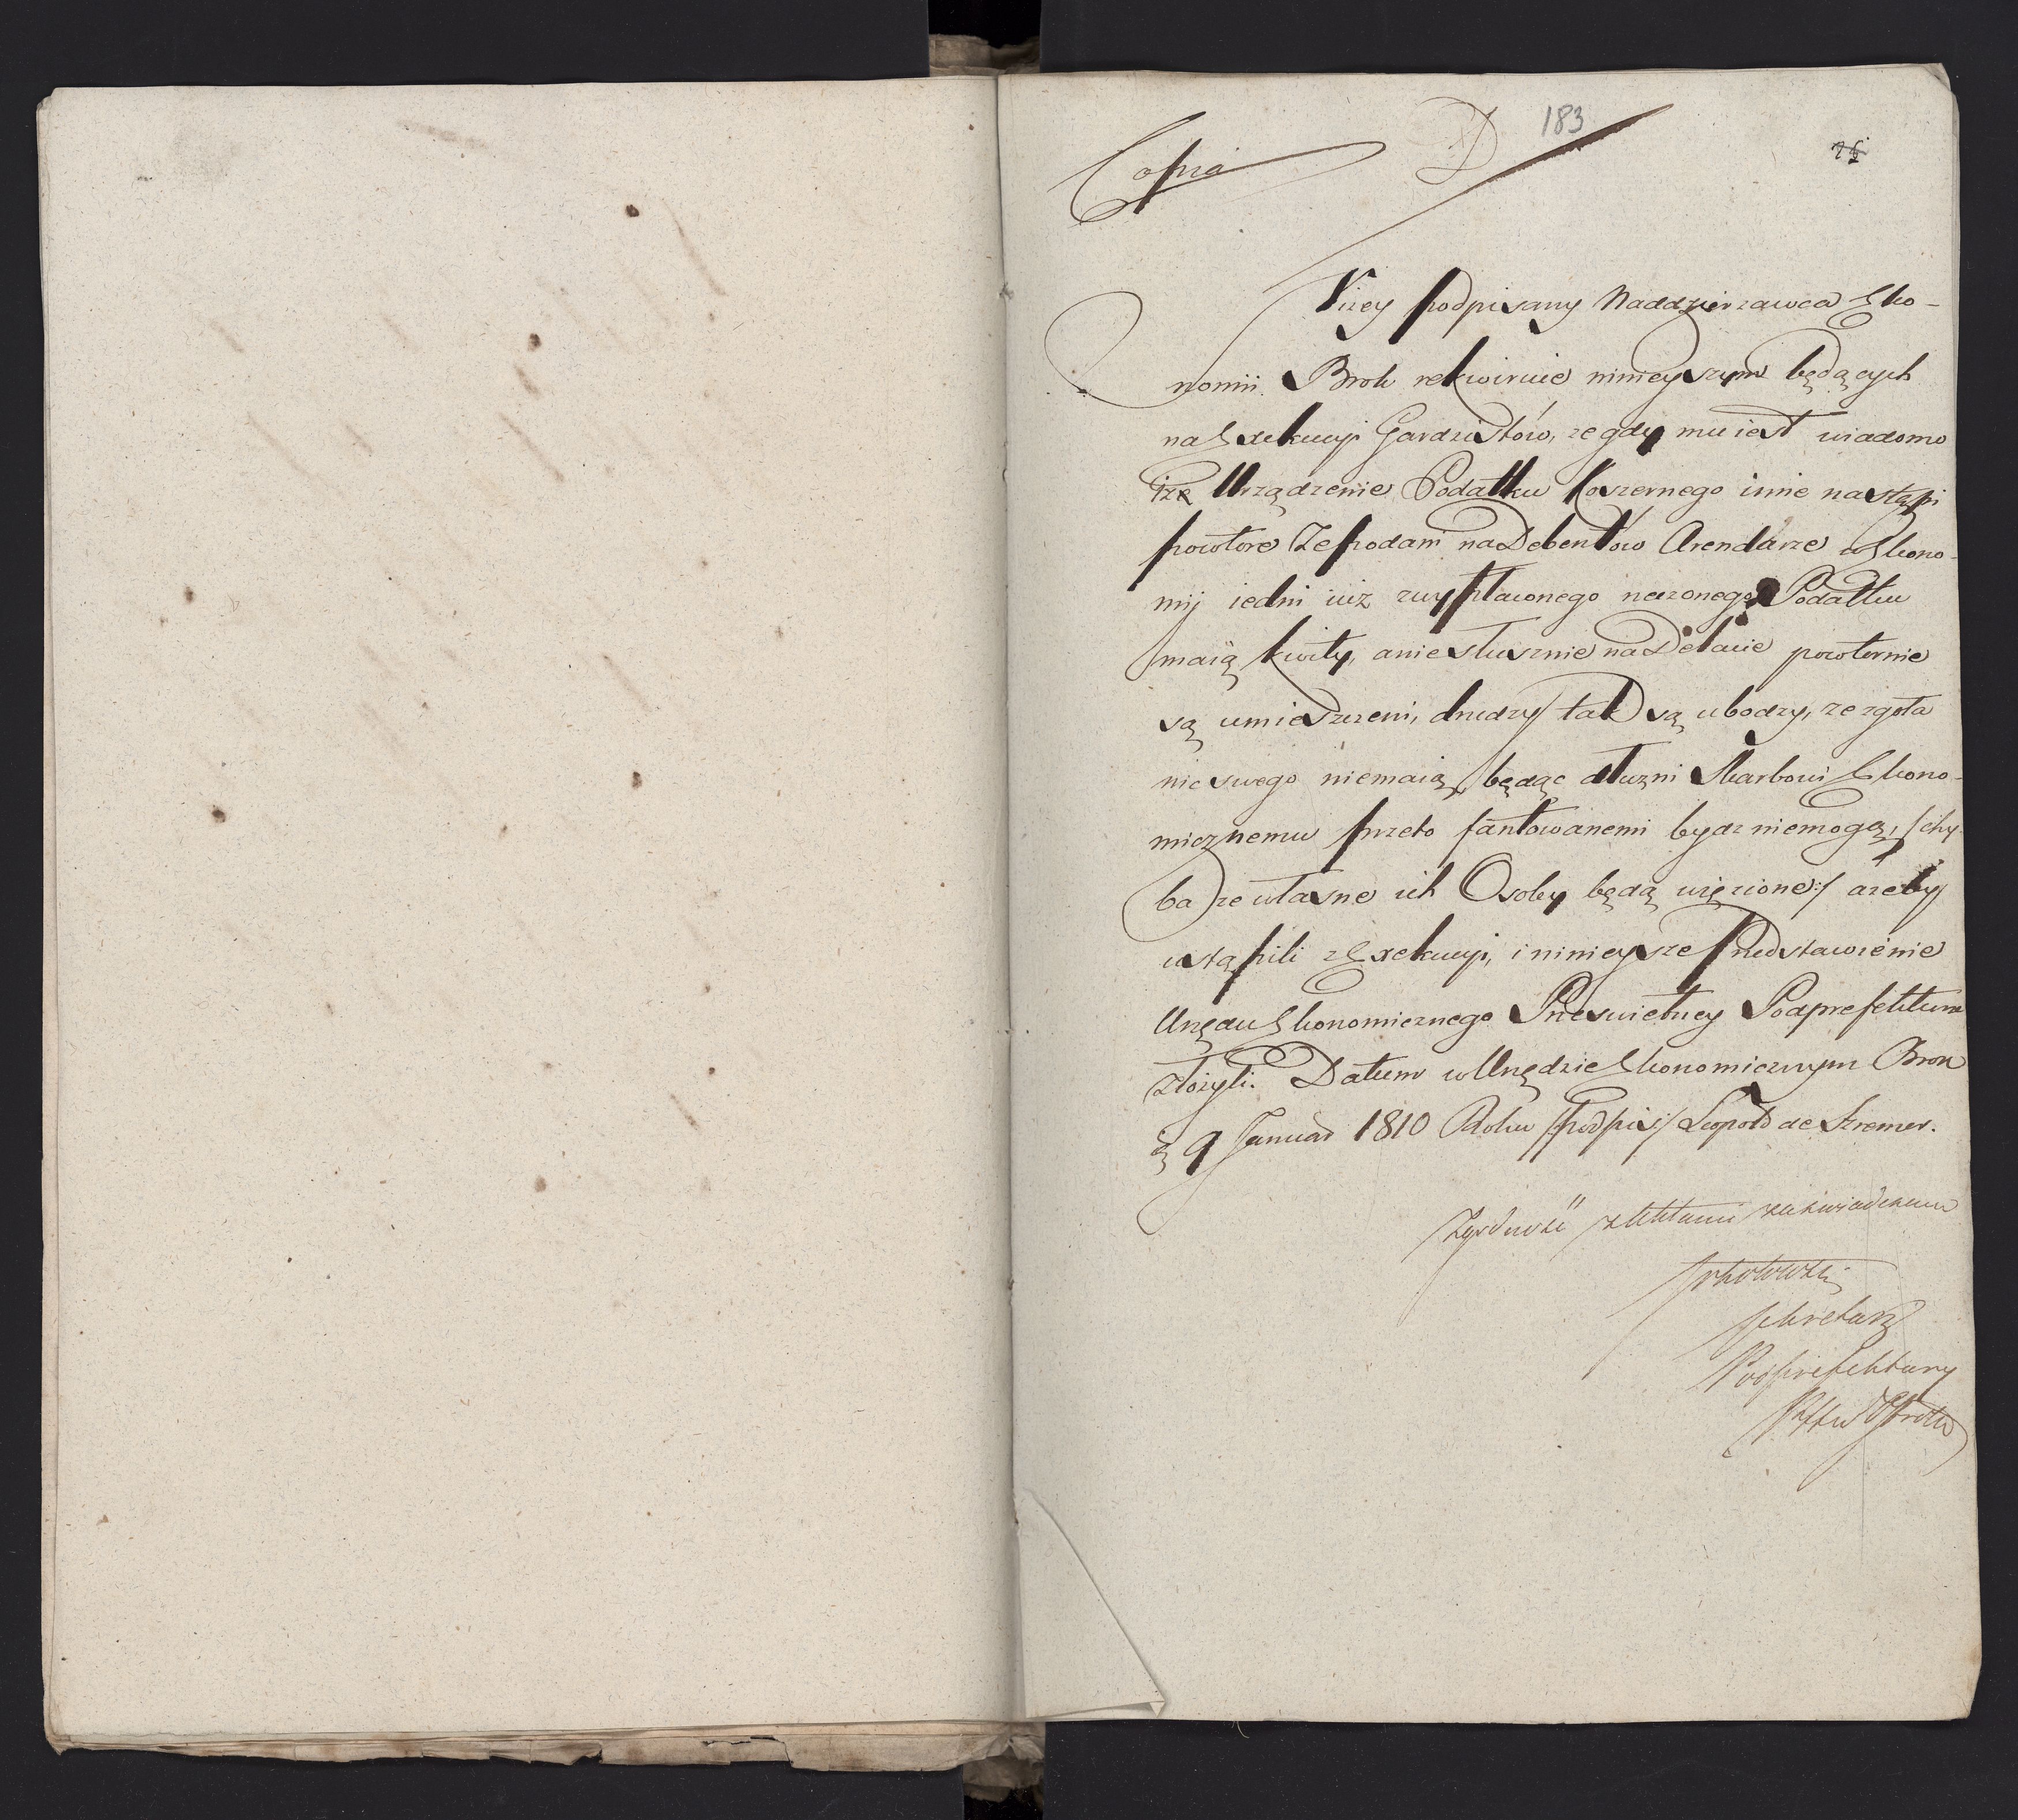 183
Copia D
Niżey podpisany Naddzierzawca Eko-
nomii Brok rekwiruie ninieyszym będących
na Exekucyi Gardzistów, ze gdy mu iest wiadomo
iże Urządzenie Podatku Koszernego inne nastąpi
powtore Ze podani na Debentów Arendarze w Ekono-
mij iedni iuż z wypłaconego rzeczonego Podatku
maią kwity, a niesłusznie na Detacie powtornie
są umieszczeni, drudzy tak są ubodzy, ze zgoła
nic swego niemaią, będąc dłużni Skarbowi Ekono-
micznemu przeto fantowanemi bydz niemogą, /chy-
ba ze własne ich Osoby będą więzione:/ azeby
ustąpili z Exekucyi, i ninieysze Przedstawienie
Urzędu Ekonomicznego Prześwietney Podprefekturze
złożyli. Datum w Urzędzie Ekonomicznym Brok
d 9 Januar 1810 Roku /podpis/ Leopold de Kremer.
Zgodność z aktami zaświadczam
Sekretarz
Podprefektury